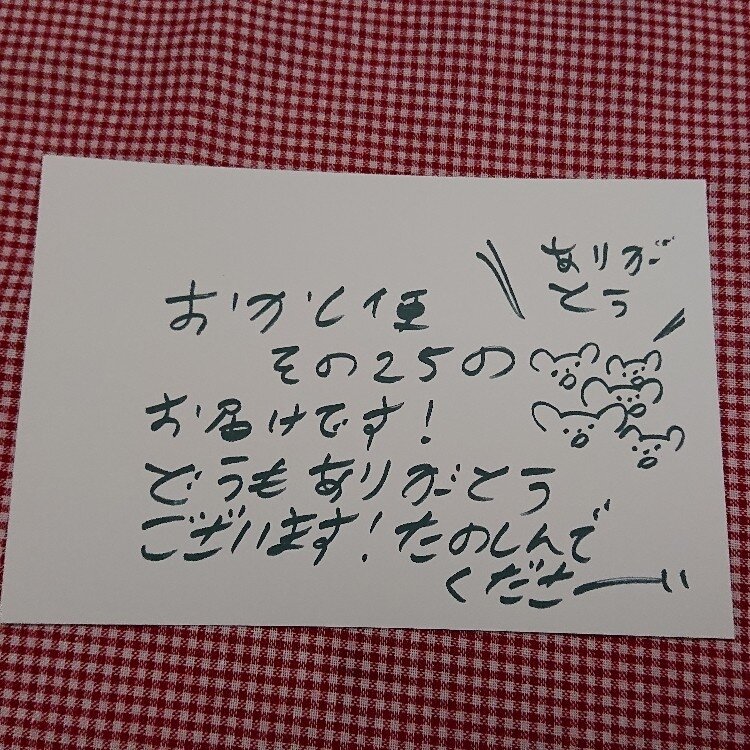 おかし便
その25の
お届けです!
どうもありがとう
ございます!たのしんで
くださーい
ありが
とう